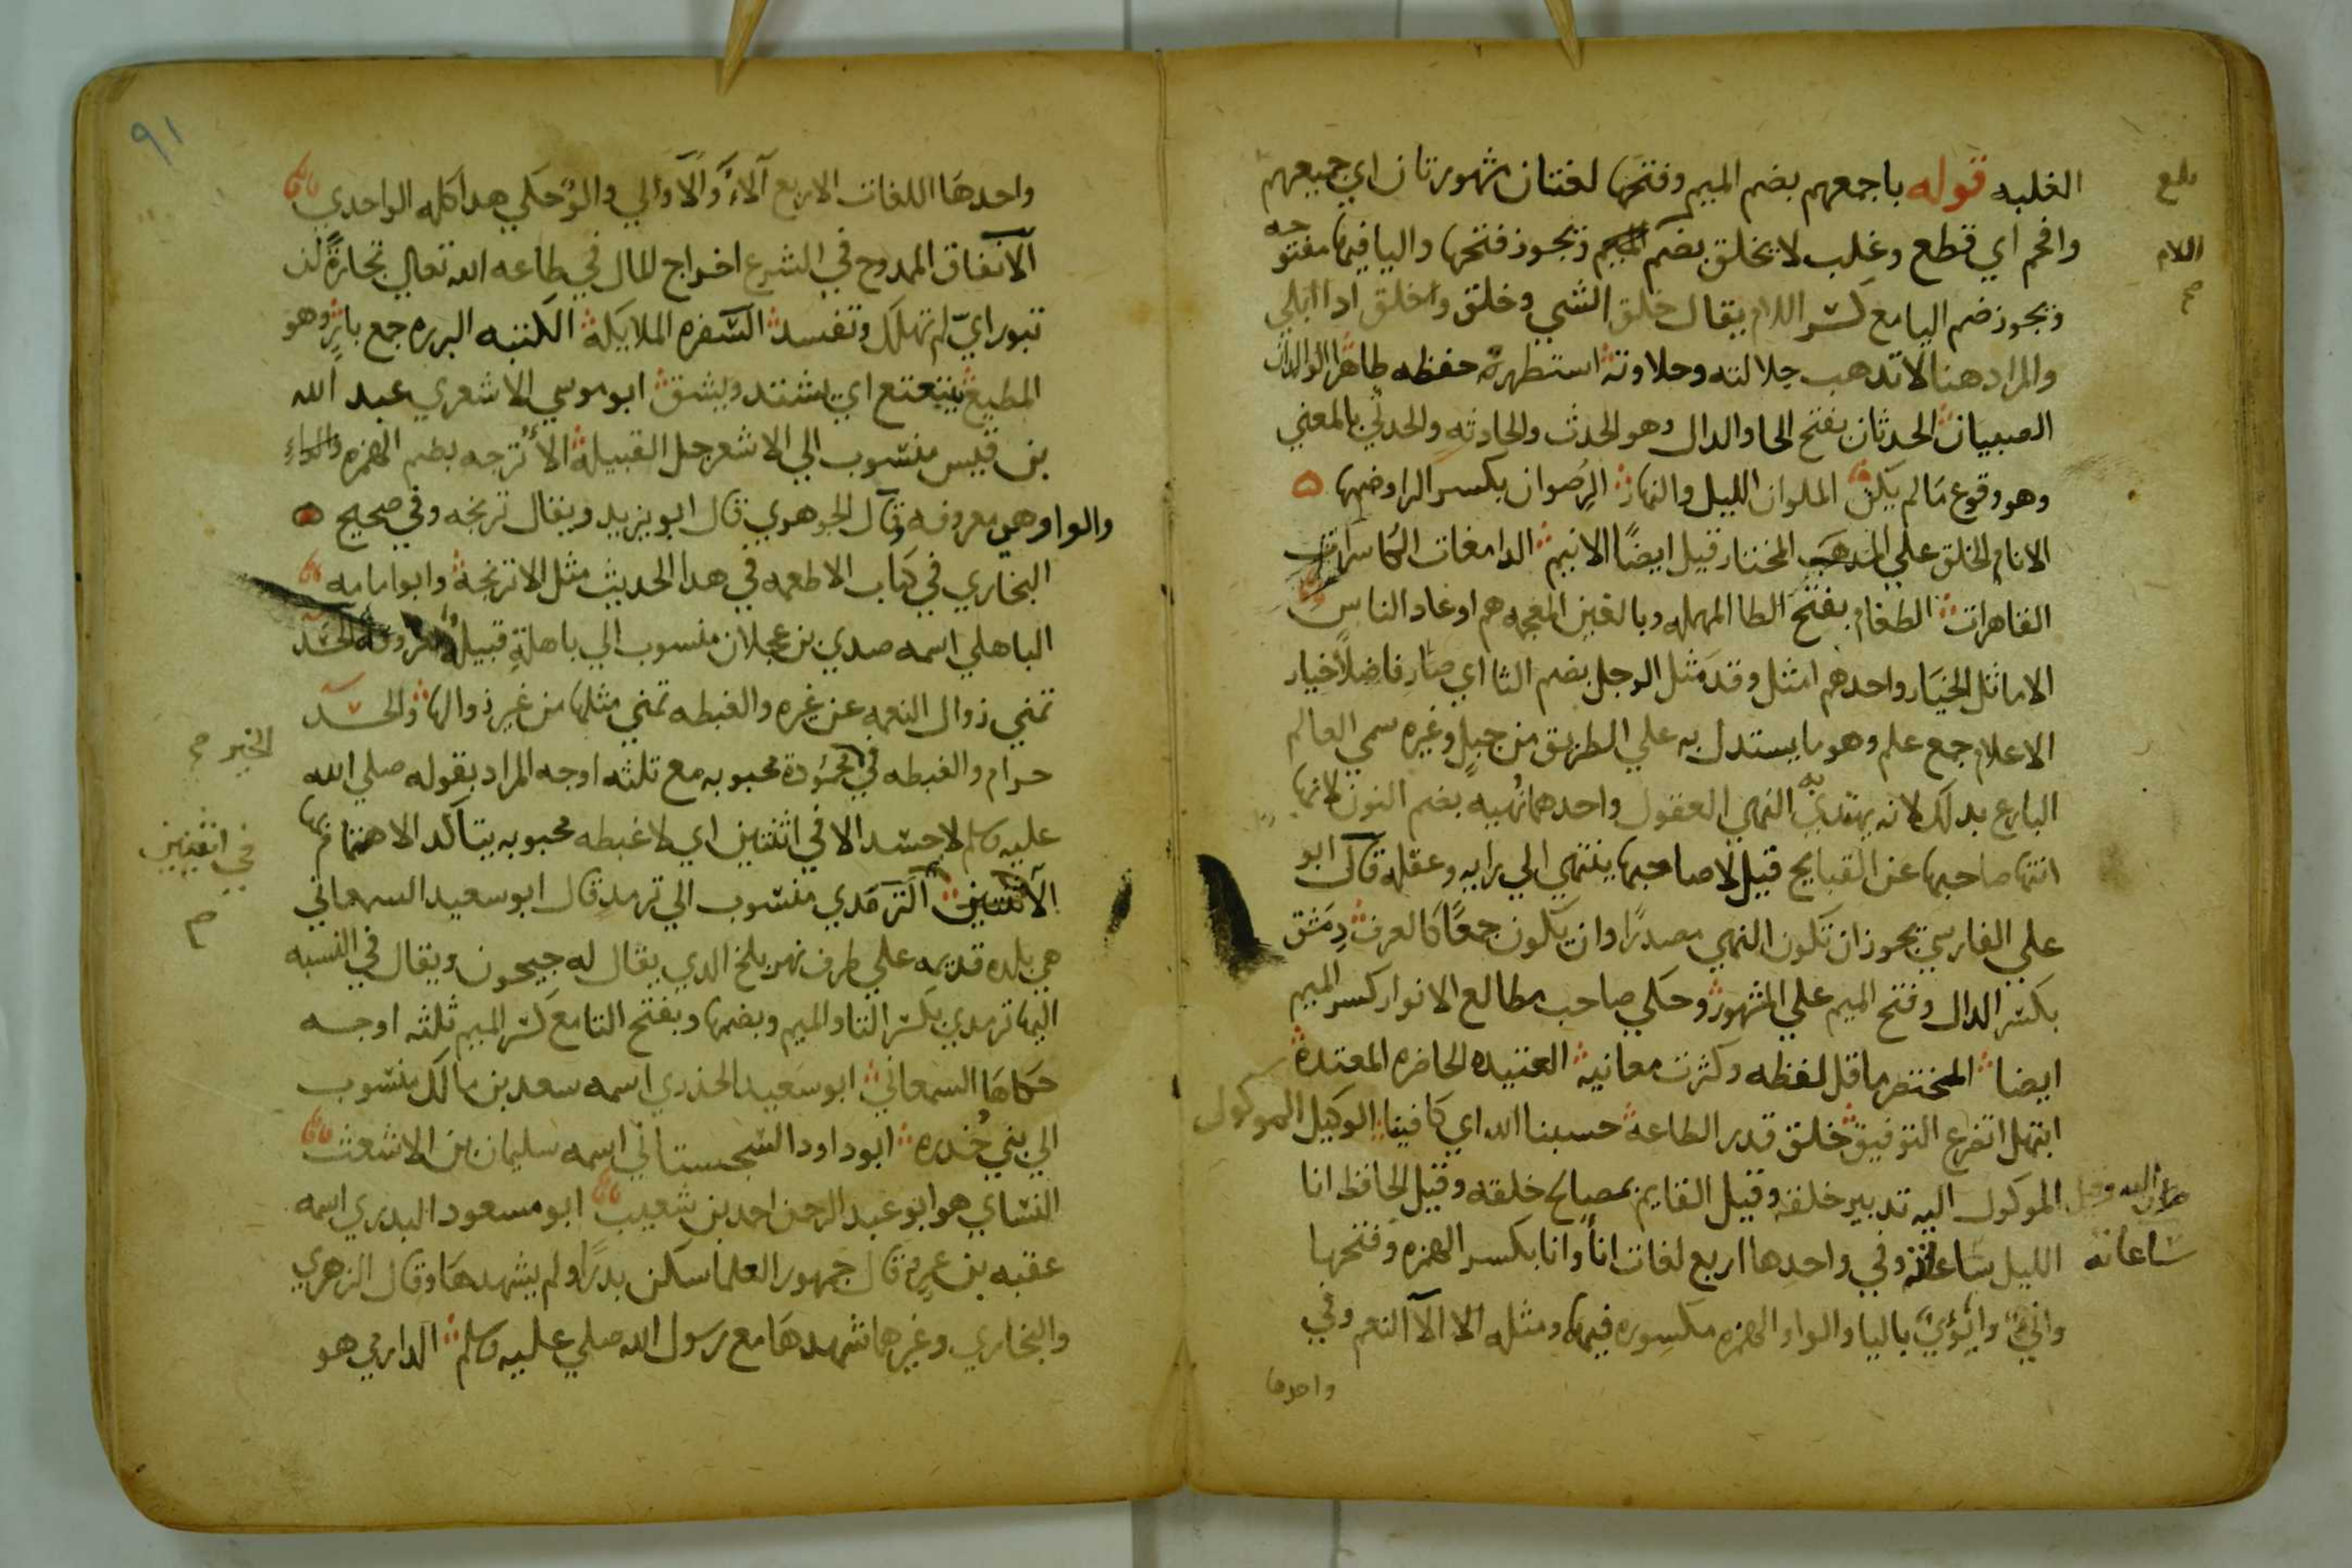 الغلبه قوله باجمعهم بضم الميم وفتحها لغتان مشهورتان اي جميعهم
وافحم اي قطع وغلب لا يخلق بضم ويجوز فتحها واليا فيهما مفتوحه
ويجوز ضم اليا مع كسر اللام يقال خلق الشي وخلق واخلق ادا ابلي
والمراد هنا لا تدهب جلالته وحلاوته استظهره حفظه ظاهرا الولدان
الصبيان الحدثان بفتح الحا والدال وهو الحدث والحادثه والحدثي بالمعني
وهو وقوع مالم يكن الملوان الليل والنهار الرضوان بكسر الرا وضمها
الانام الخلق علي المدهب المختار قيل ايضًا الانيم الدامغات الكاسرات
القاهرات الطغام بفتح الطا المهمله وبالغين المعجمه هم اوغاد الناس
الاماثل الخيار واحدهم امثل وقد مثل الرجل بضم الثا اي صار فاضلا خيار
الاعلام جمع علم وهو ما يستدل به علي الطريق من جبل وغيره سمي العالم
البارع بدلك لانه يهتدي به النهي العقول واحدها نهيه بضم النون لانها
انتها صاحبها عن القبايح قيل لا صاحبها ينتهي الي رايه وعقله قال ابو
علي الفارسي يجوز ان تكون النهي مصدرًا وان يكون جمعًا كالغرف دمشق
بكسر الدال وفتح الميم علي المشهور وحكي صاحب مطالع الانوار كسر الميم
ايضا المختصر ما قل لفظه وكثرت معانيه العتيده الحاضره المعتدة
ابتهل اتضرع التوفيق خلق قدر الطاعة حسبنا الله اي كافينا الوكيل الموكول
الموكول اليه تدبير خلقه وقيل القايم بمصالح خلقه وقيل الحافظ انا
الليل ساعاته وفي واحدها اربع لغات انا وانا بكسر الهمزه وفتحها
واني وانو باليا والواو الهمزه مكسوره فيهما ومثله الالا النعم وفي
واحدها
بلغ
اللام
صح
اليه وقيل
ساعاته
٩١
واحدها اللغات الاربع آلاء وألا والي والو حكي هدا كله الواحدي
الانفاق الممدوح في الشرع اخراج المال في طاعه الله تعالي تجارة لن
تبور اي لم تهلك وتفسد السفره الملايكة الكتبه البرره جمع بار وهو
المطيع يتتعتع اي يشتد ويشق ابو موسي الاشعري عبد الله
بن قيس منسوب الي الاشعر جل القبيلة الأترجه بضم الهمزه والراء
والواو وهي معروفه قال الجوهري قال ابو يزيد ويقال ترنجه وفي صحيح
البخاري في كتاب الاطعمه في هدا الحديث مثل الاترنجة وابوامامه
الباهلي اسمه صدي بن عجلان منسوب الي باهلة قبيلة معروفه الحسد
تمني زوال النعمه عن غيره والغبطه تمني مثلها من غير زوالها والحسد
حرام والغبطه في محبوبه مع تلثه اوجه المراد بقوله صلي الله
عليه وسلم لا حسد الا في اثنتين اي لا غبطه محبوبه يتاكد الاهتمام بها
الا في اثنتين الترمدي منسوب الي ترمد قال ابو سعيد السمعاني
هي بلده قديمه علي طرف نهر بلخ الدي يقال له جيحون ويقال في النسبه
اليها ترمدي بكسر التا والميم وبضمها وبفتح التا مع كسر الميم ثلثه اوجه
حكاها السمعاني ابو سعيد الخدري اسمه سعد بن مالك منسوب
الي بني خدره ابو داود السجستاني اسمه سليمان بن الاشعث
النساي هو ابو عبد الرحمن احمد بن شعيب ابو مسعود البدري اسمه
عقبه بن عمرو قال جمهور العلما سكن بدرًا ولم يشهدها وقال الزهري
والبخاري وغيرهما شهدها مع رسول الله صلي عليه وسلم الدارمي هو
الخير صح
في اثنتين
صح